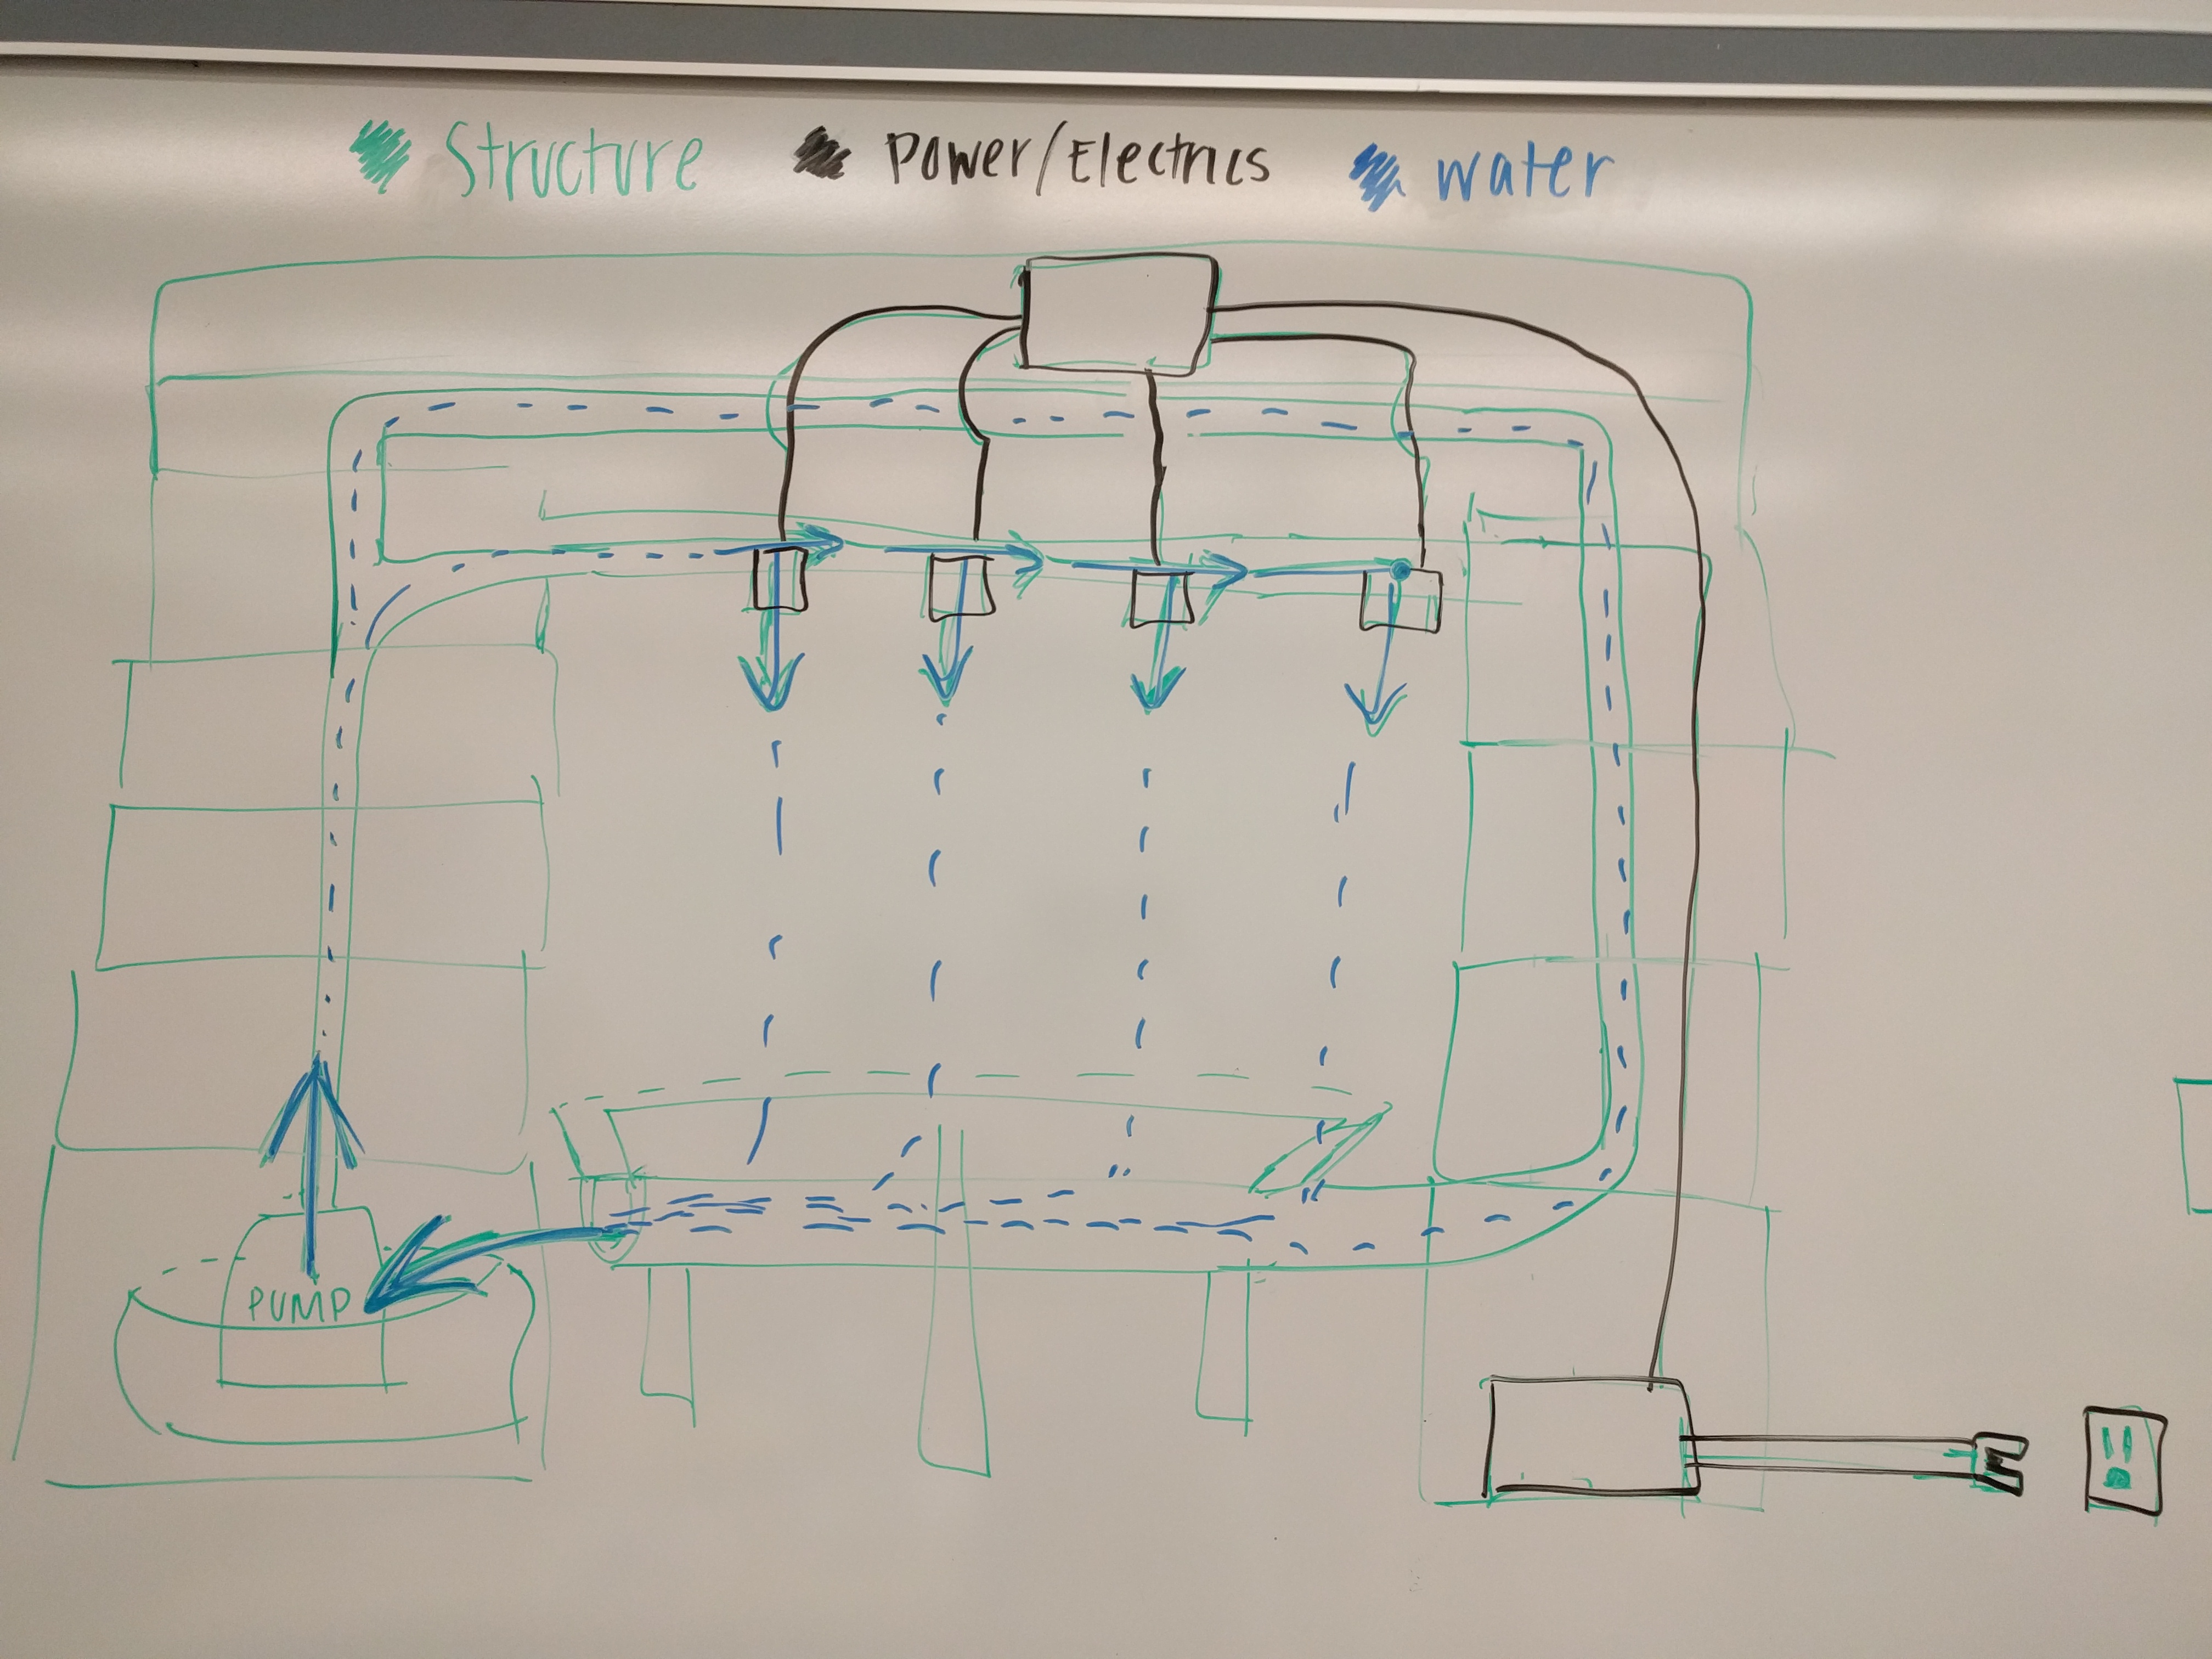 Structure Power/Electrics water
PUMP